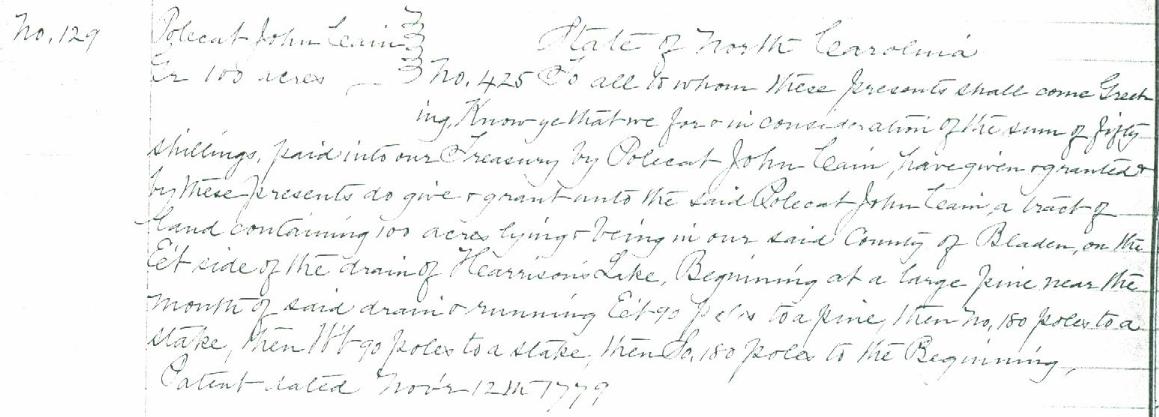 No. 129 Polecat John Cain State of North Carolina
Gr 100 acres No. 425 To all to whom these presents shall come Greet
ing, Know ye that we for & in consideration of the sum of fifty
shillings, paid into our Treasury by Polecat John Cain, have given & granted &
by these presents do give & grant unto the said Polecat John Cain, a tract of
land containing 100 acres lying & being in our said County of Bladen, on the
E't side of the drain of Harrison's Lake, Beginning at a large pine near the
mouth of said drain & running E't 90 poles to a pine, then No, 180 poles to a
stake, then W't 90 poles to a stake, then So, 180 poles to the Beginning,
Patent dated Nov'r 12th 1779